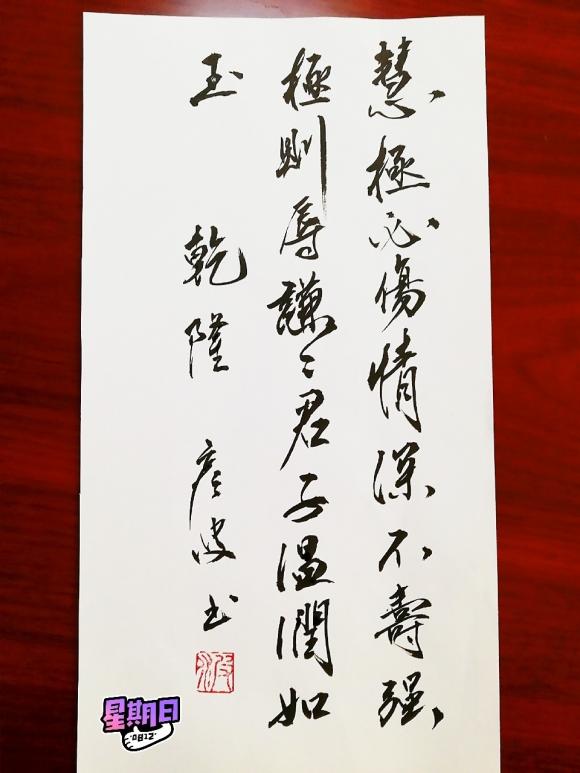 慧極必傷情深不壽强
極則辱謙々君子温潤如
玉 乾隆 彦波书
波
星期日
0812